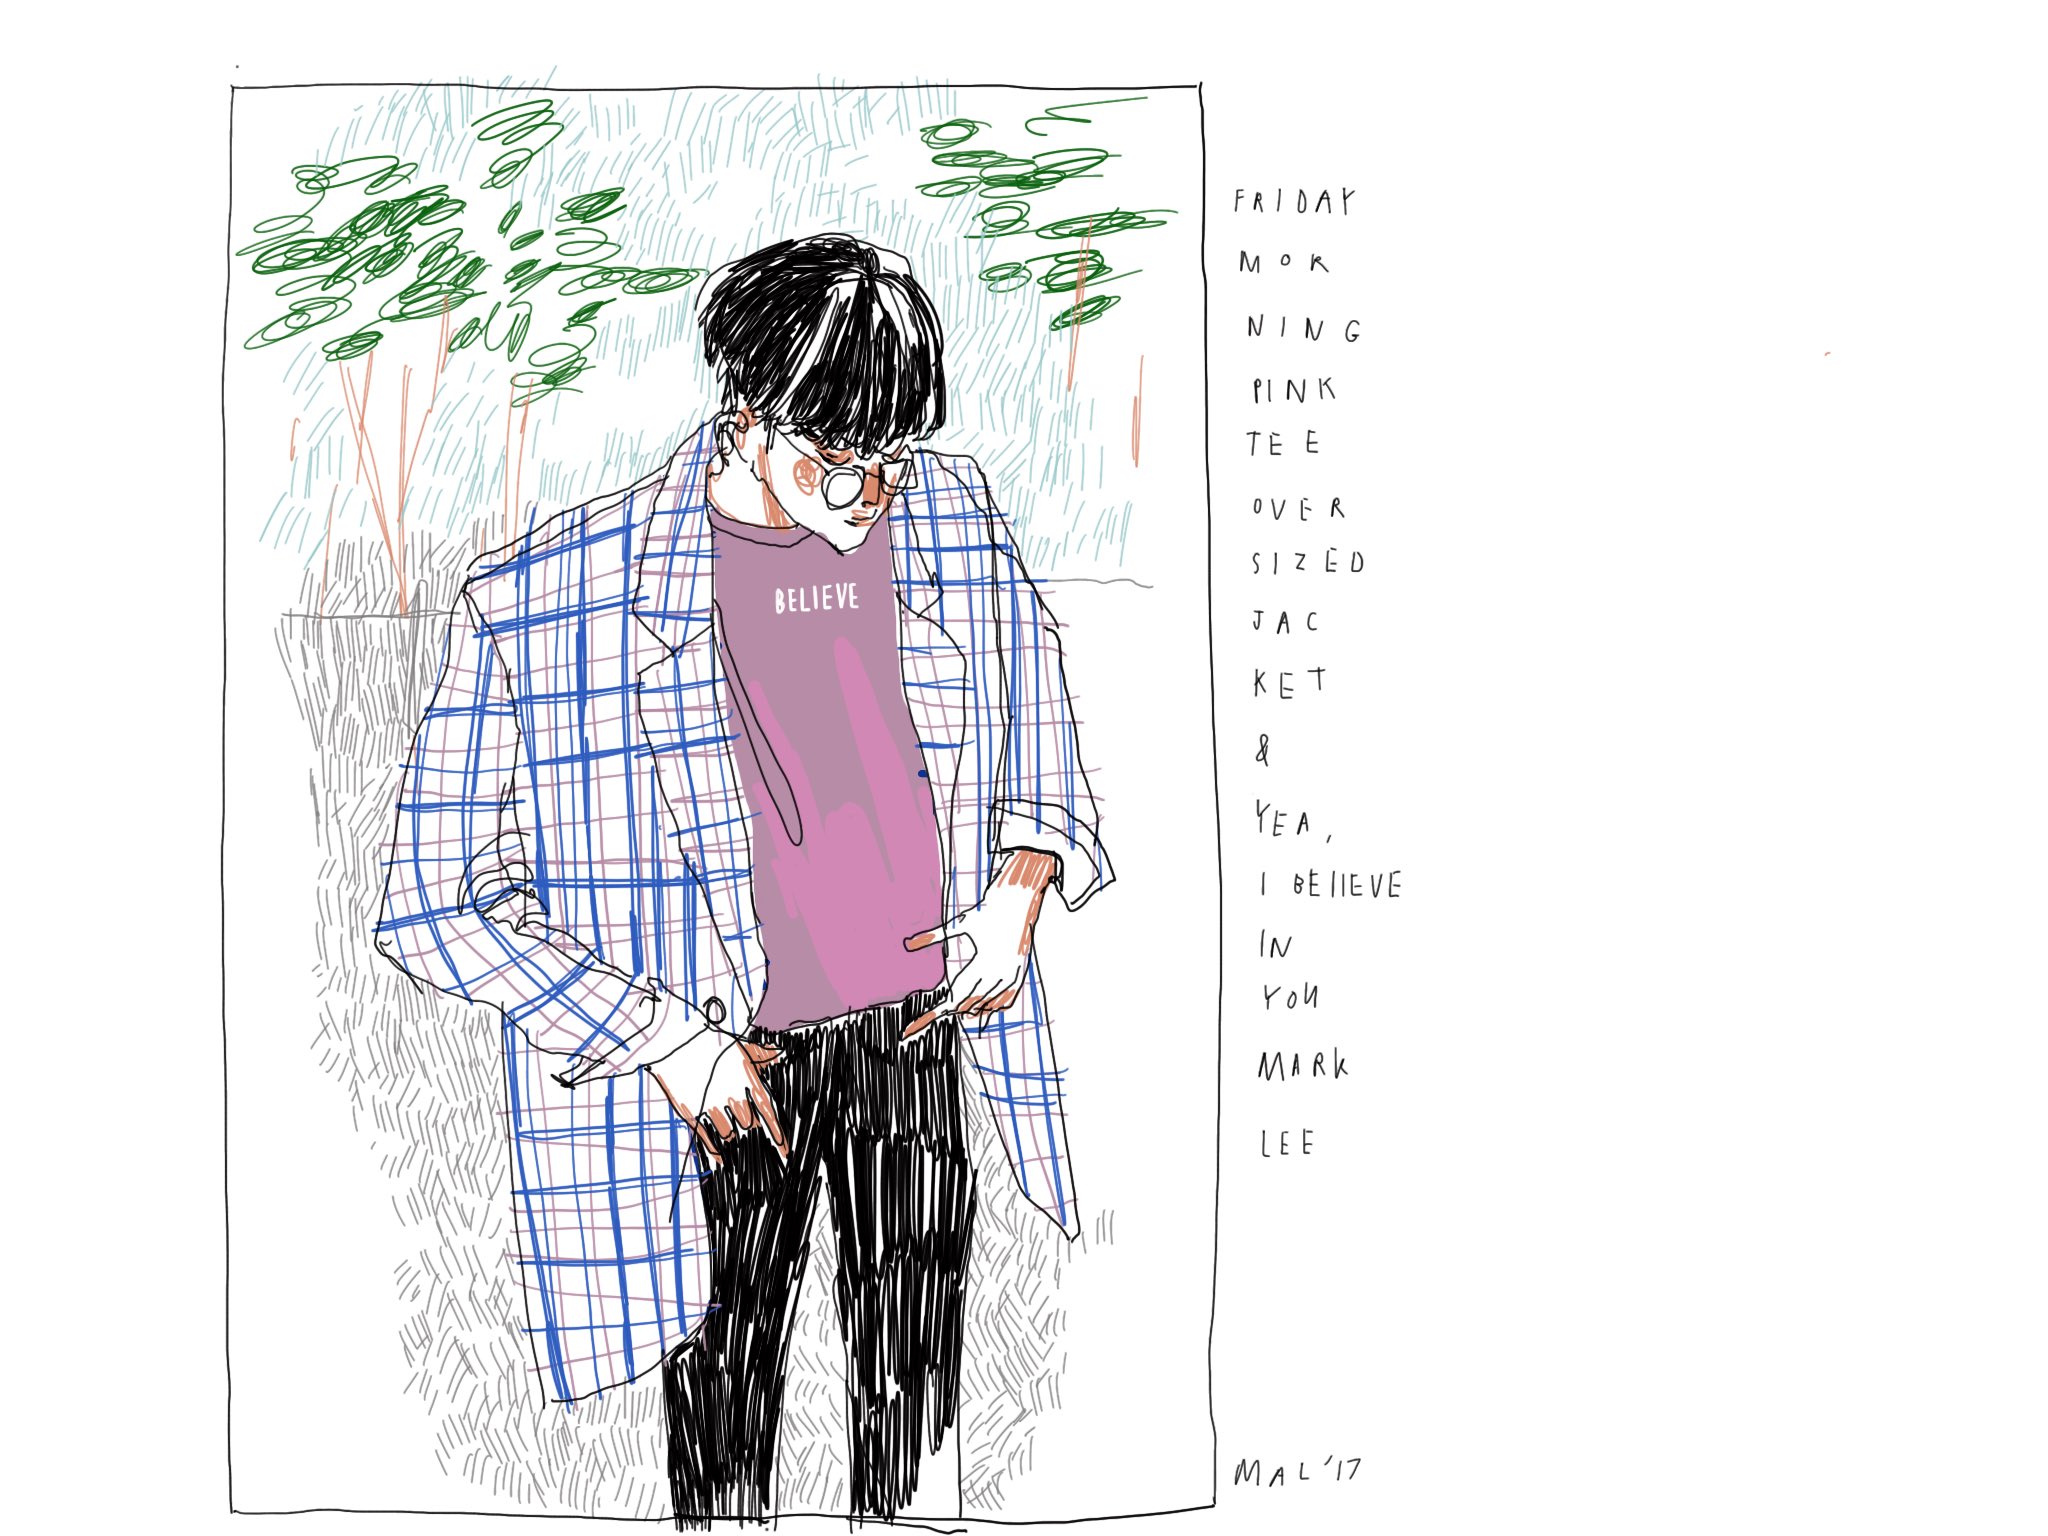 BELIEVE
FRIDAY
MOR
NING
PINK
TEE
OVER
SIZED
JAC
KET
&
YEA,
I BELIEVE
IN
YOU
MARK
LEE
MAL '17